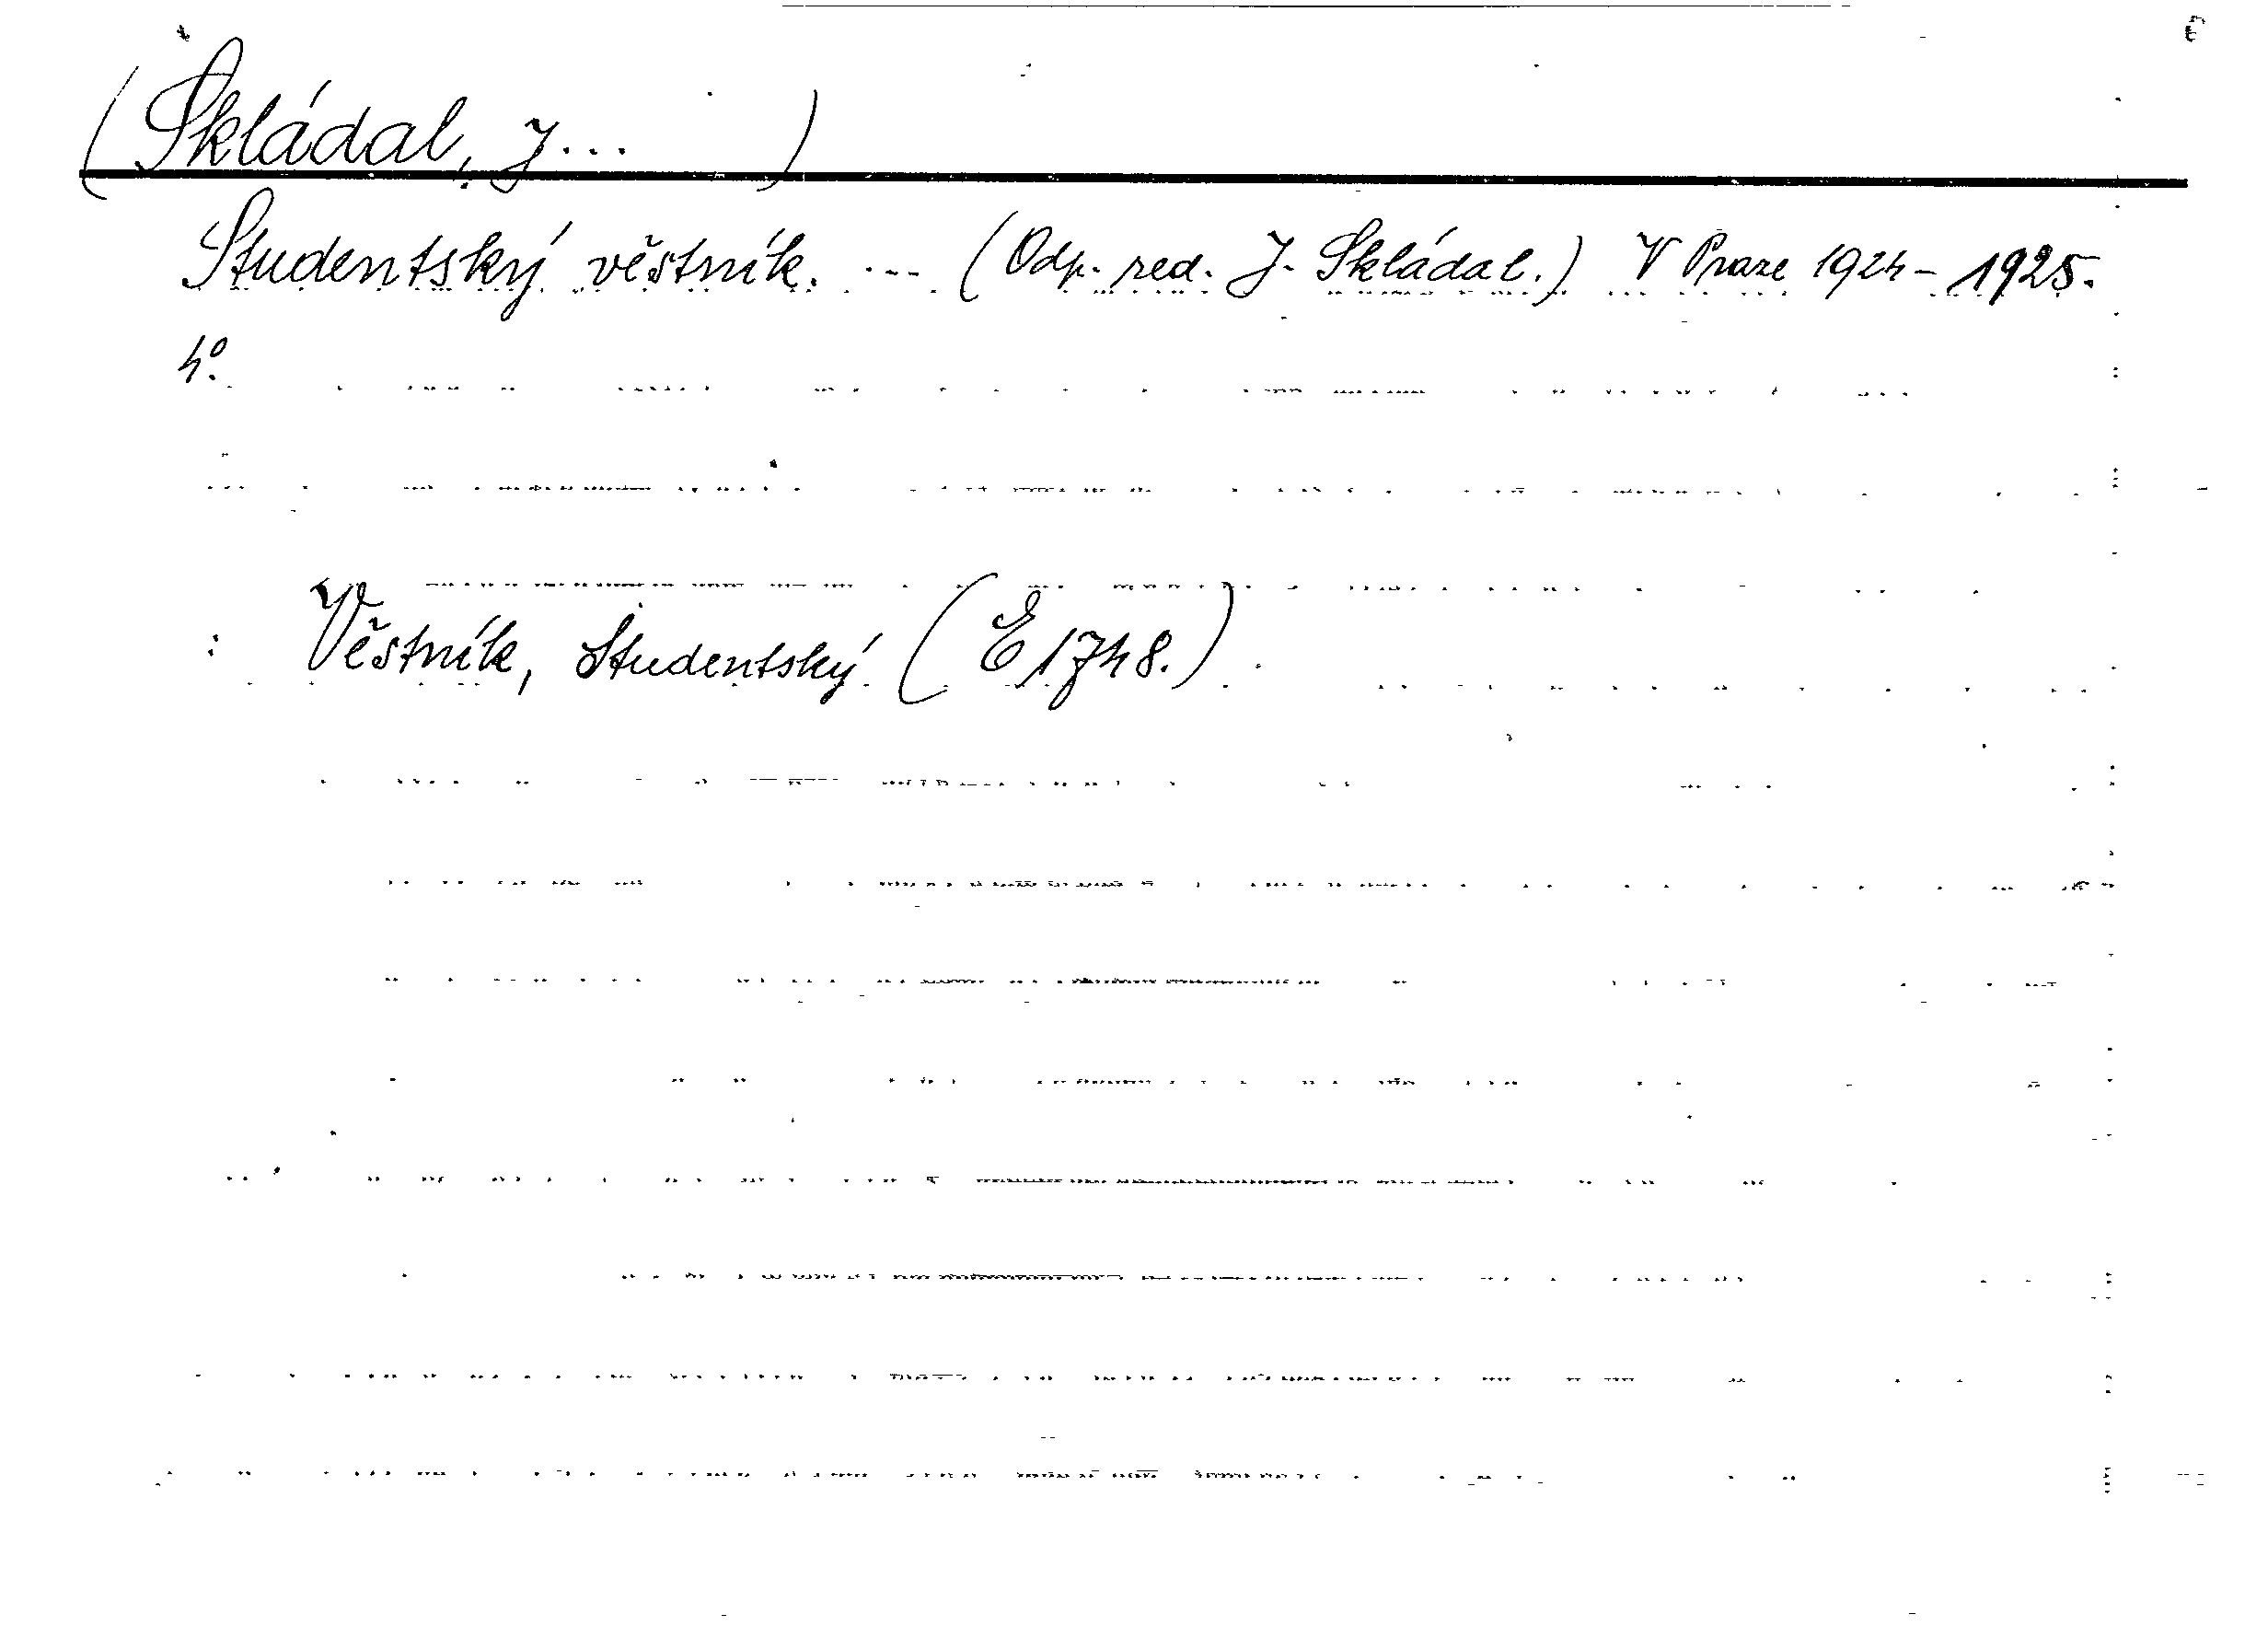 (Skládal, J... )
Studentský věstník. ... (Odp. red. J. Skládal.) V Praze 1924-1925.
4°.
Věstník, Studentský (E 1748.)